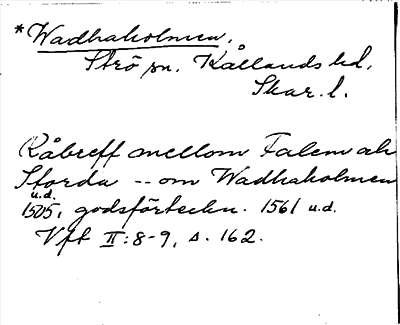 *Wadhaholmen.
Strö sn. Kållands hd.
Skar. l.
Råbreff mellom Falem ok
Storda -- om Wadhaholmen
u.d.
1505, godsförteckn. 1561 u.d.
Vft II:8-9, s. 162.